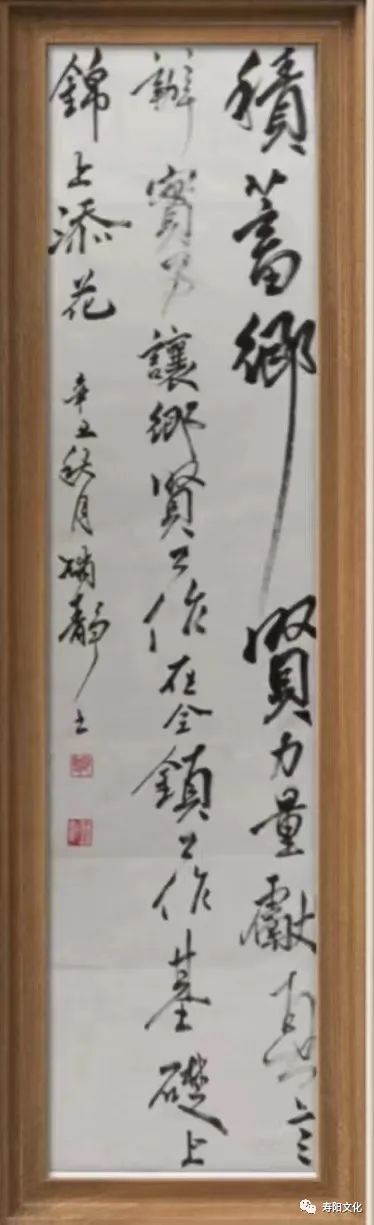 積蓄鄉賢力量獻真言
辦實事讓鄉賢工作在全鎮工作基礎上
錦上添花
辛丑秋月 靜书
寿阳文化